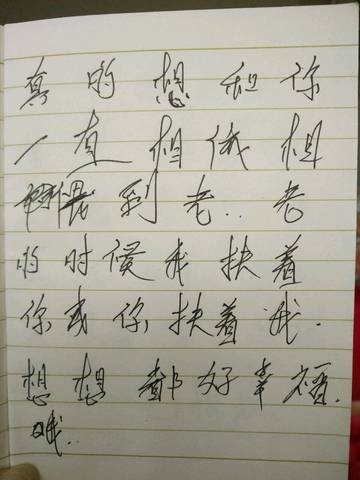 真的想和你
一直相依相
偎到老..老
的时候我扶着
你或你扶着我.
想想都好幸福.
哦..